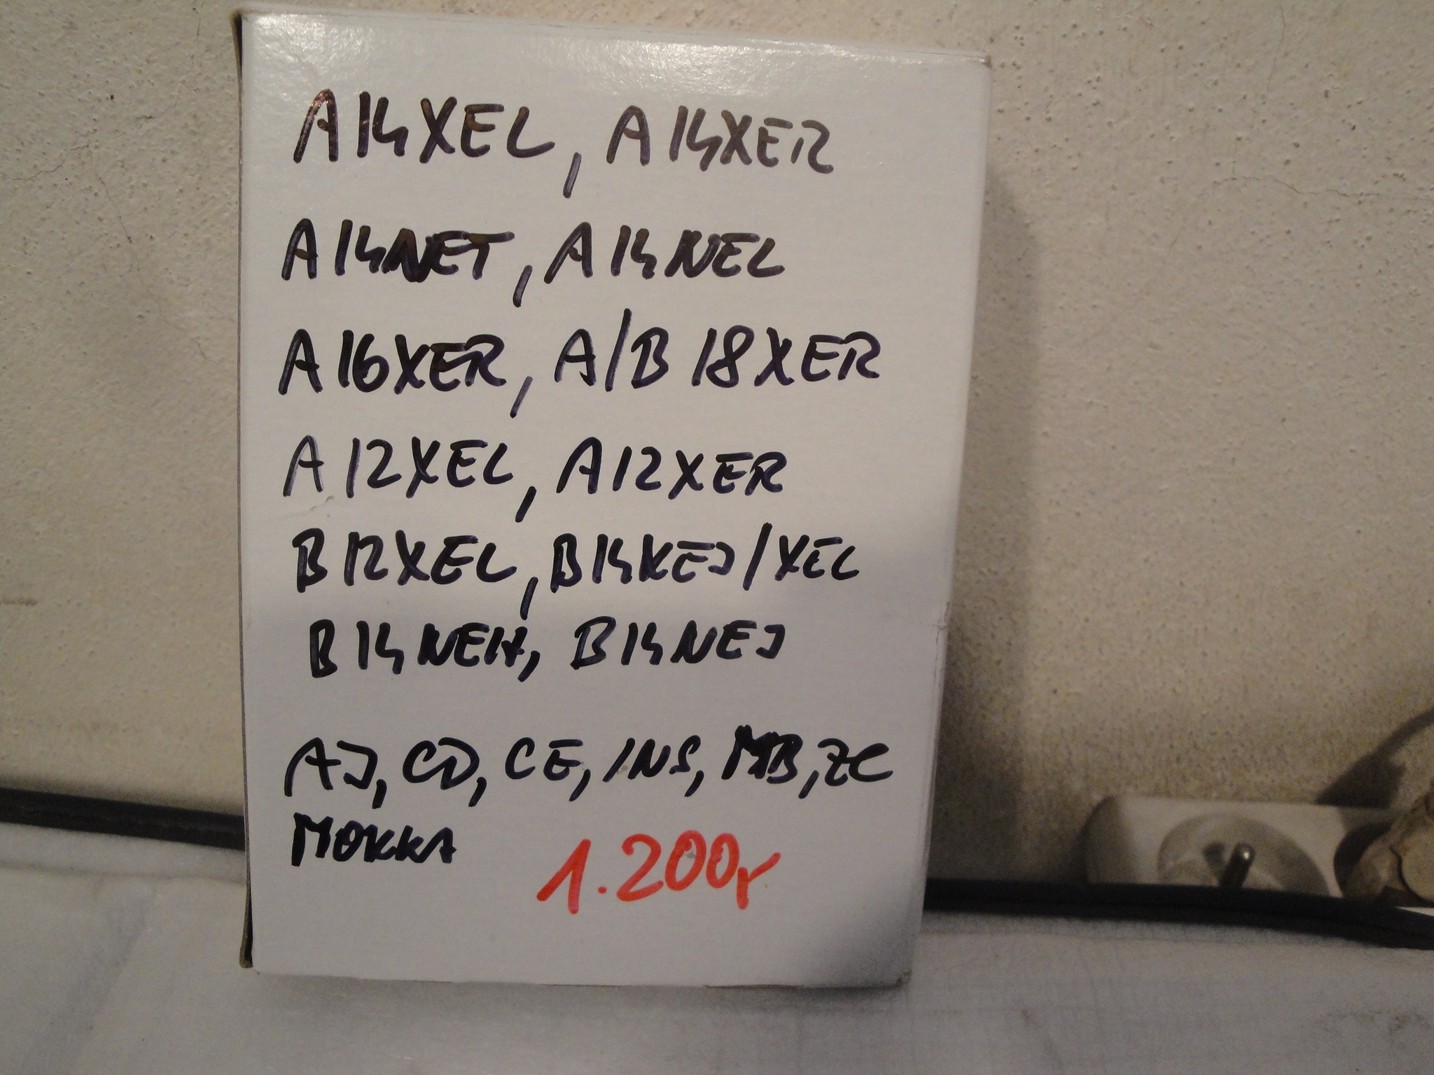 A14XEL, A14XER
A14NET, A14NEL
A16XER, A/B 18XER
A12XEL, A12XER
B12XEL, B14XEJ/XEL
B14NEH, B14NEJ
AJ, CD, CE, INS, MB, ZC
MOKKA
1.200r